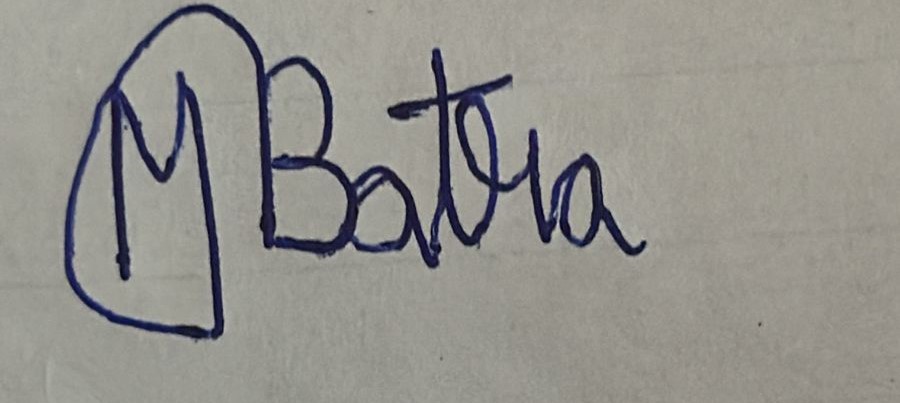 M Batra